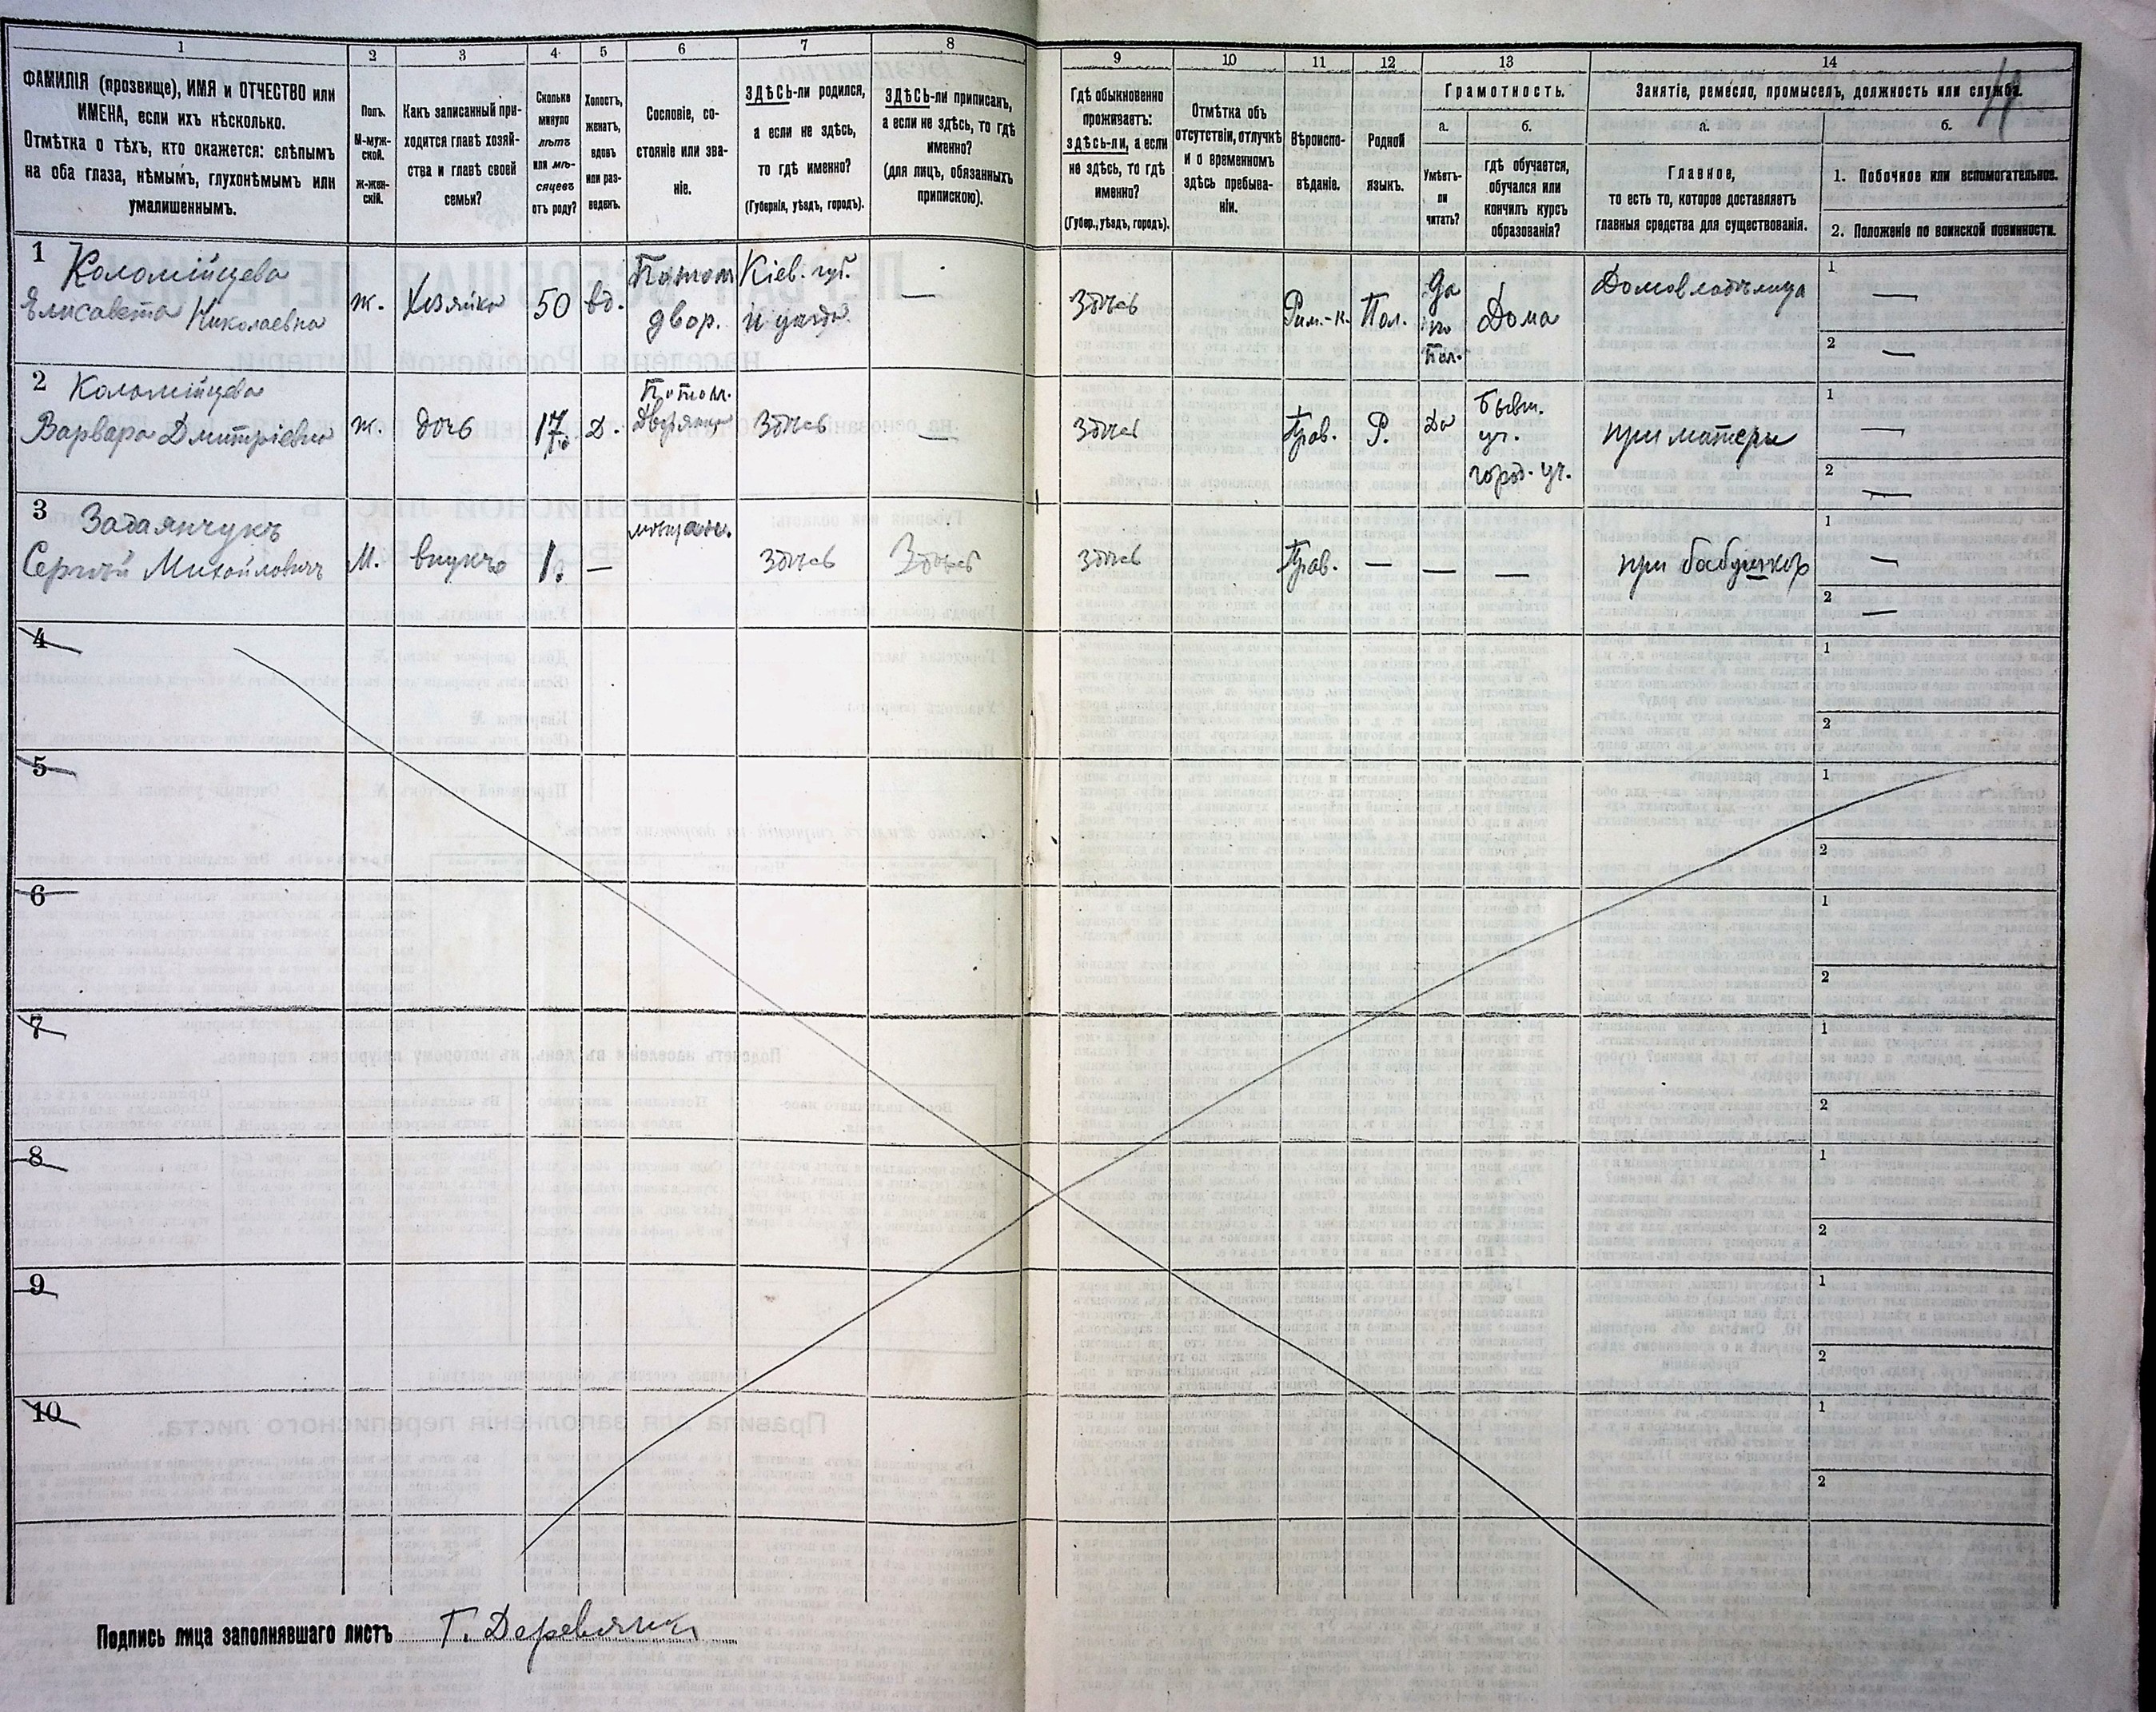 1 2 3 4 5 6 7 8 9 10 11 12 13 14
ФАМИЛІЯ (прозвище), ИМЯ и ОТЧЕСТВО или
ИМЕНА, если ихъ нѣсколько.
Отмѣтка о тѣхъ, кто окажется: слѣпымъ
на оба глаза, нѣмымъ, глухонѣмымъ или
умалишеннымъ.
Полъ.
М-муж-
ской.
ж-жен-
скій.
Какъ записанный при-
ходится главѣ хозяй-
ства и главѣ своей
семьи?
Сколько
минуло
лѣтъ
или мѣ-
сяцевъ
отъ роду?
Холостъ,
женатъ,
вдовъ
или раз-
веденъ.
Сословіе, со-
стояніе или зва-
ніе.
ЗДѢСЬ-ли родился,
а если не здѣсь,
то гдѣ именно?
(Губернія, уѣздъ, городъ).
ЗДѢСЬ-ли приписанъ,
а если не здѣсь, то гдѣ
именно?
(для лицъ, обязанныхъ
припискою).
Гдѣ обыкновенно
проживаетъ:
здѣсь-ли, а если
не здѣсь, то гдѣ
именно?
(Губер., уѣздъ, городъ).
Отмѣтка объ
отсутствіи, отлучкѣ
и о временномъ
здѣсь пребыва-
ніи.
Вѣроиспо-
вѣданіе.
Родной
языкъ.
Грамотность.
а.
Умѣетъ-
ли
читать?
б.
гдѣ обучается,
обучался или
кончилъ курсъ
образованія?
Занятіе, ремесло, промыселъ, должность или служба.
а.
Главное,
то есть то, которое доставляетъ
главныя средства для существованія.
б.
1. Побочное или вспомогательное.
2. Положеніе по воинской повинности.
1 Коломійцева
Елисавета Николаевна
ж.
Хозяйка
50
вд.
Потом
двор.
Кіев. губ.
и уѣзда
—
Здѣсь
Рим.-к.
Пол.
Да
по
Пол.
Дома
Домовладѣлица
1 —
2 —
2 Коломійцева
Варвара Дмитріевна
ж.
дочь
17
Д.
Потом.
Дворянка
Здѣсь
—
Здѣсь
Прав.
Р.
Да
бывш.
уч.
город. уч.
при матери
1 —
2 —
3 Задаянчукъ
Сергѣй Михайловичъ
М.
внукъ
1.
—
мѣщанин.
Здѣсь
Здѣсь
Здѣсь
Прав.
—
—
—
при бабушкѣ
1 —
2 —
4
1
2
5
1
2
6
1
2
7
1
2
8
1
2
9
1
2
10
1
2
Подпись лица заполнявшаго листъ Г. Деревянк